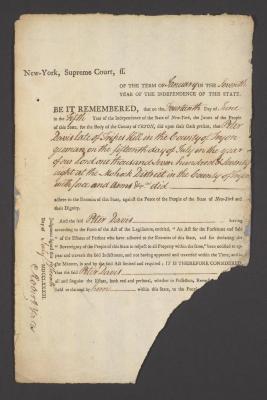 New-York, Supreme Court, ss.
OF THE TERM OF January IN THE Seventh
YEAR OF THE INDEPENDENCE OF THIS STATE.
BE IT REMEMBERED, that on the Fourteenth Day of June
in the Fifth Year of the Independence of the State of New-York, the Jurors of the People
of this State, for the Body of the County of TRYON, did upon their Oath present, that Peter
Davis late of Tripes Hill in the County of Tryon
yeoman on the fifteenth day of July in the year
of our Lord one thousand seven hundred & seventy
eight at the Mohawk District in the County of Tryon
with force and arms &c. did
adhere to the Enemies of this State, against the Peace of the People of the State of New-York and
their Dignity.
And the said Peter Davis having
according to the Form of the Act of the Legislature, entitled, "An Act for the Forfeiture and Sale
"of the Estates of Persons who have adhered to the Enemies of this State, and for declaring the
"Sovereignty of the People of this State in respect to all Property within the same," been notified to ap-
pear and traverse the said Indictment, and not having appeared and traversed within the Time, and in
the Manner, in and by the said Act limited and required; IT IS THEREFORE CONSIDERED,
that the said Peter Davis
all and singular the Estate, both real and personal, whether in Possession, Rever
held or claimed by him within this State, to the People
July
MDCCLXXXIII.